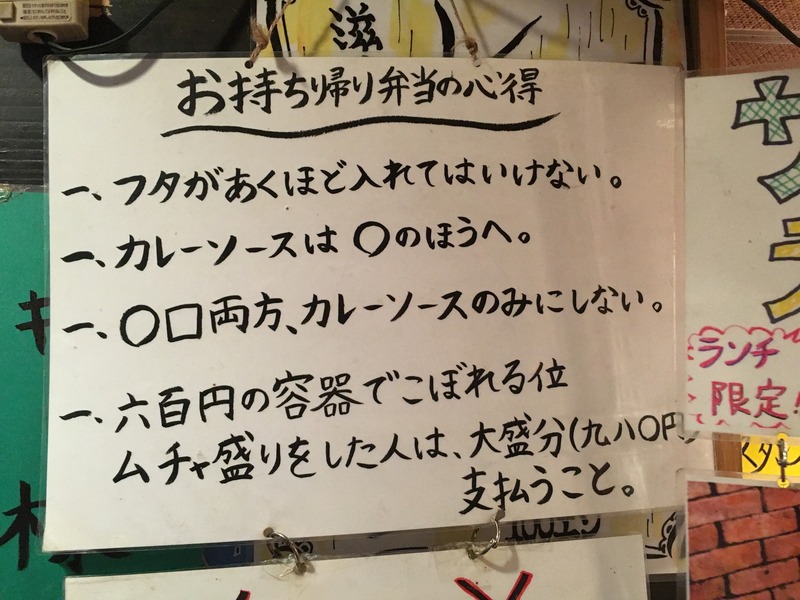 お持ち帰り弁当の心得
一、フタがあくほど入れてはいけない。
一、カレーソースは〇のほうへ。
一、〇□両方、カレーソースのみにしない。
一、六百円の容器でこぼれる位
ムチャ盛りをした人は、大盛分(九八〇円)
支払うこと。
滋
サ
ラ
ランチ
限定!